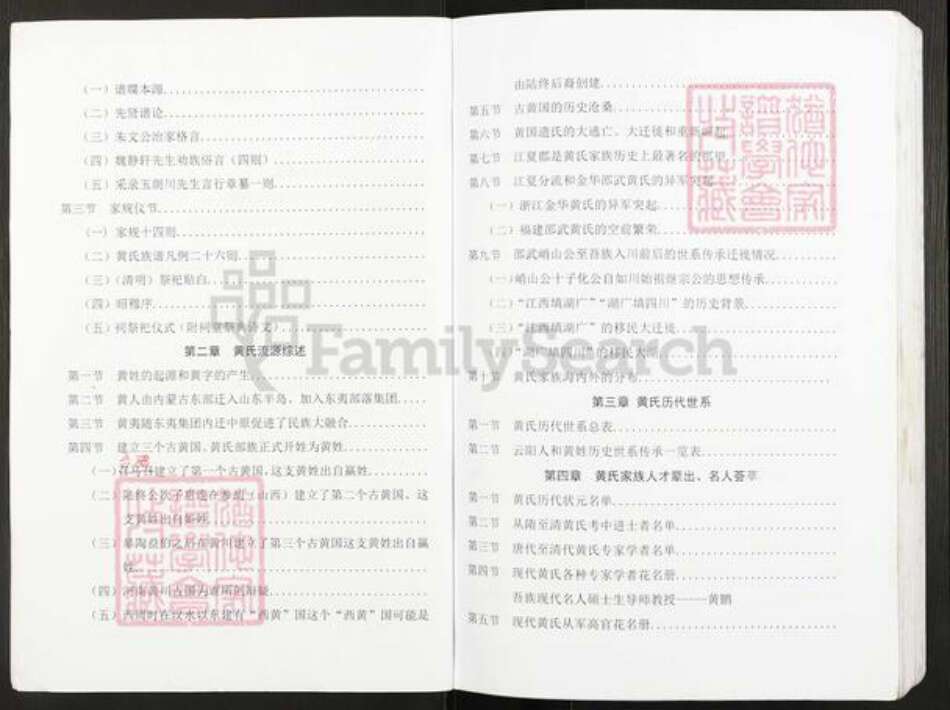 （一）谱牒本源
（二）先贤谱论
（三）朱文公治家格言
（四）魏静轩先生劝族俗言（四则）
（五）采录玉朗川先生言行章纂一则
第三节 家规仪节
（一）家规十四则
（二）黄氏族谱凡例二十六则
（三）（清明）祭祀贴白
（四）昭穆序
（五）祠祭祀仪式（附祠堂祭文）
第二章 黄氏流源综述
第一节 黄姓的起源和黄字的产生
第二节 黄人由内蒙古东部迁入山东半岛，加入东夷部落集团
第三节 黄夷随东夷集团内迁中原促进了民族大融合
第四节 建立三个古黄国、黄氏部族正式开姓为黄姓
（一）建立了第一个古黄国，这支黄姓出自嬴姓
（二）陆终公次子惠连在参胡（山西）建立了第二个古黄国、这
支黄姓出自
（三）之后在黄川建立了第三个古黄国这支黄姓出自嬴
姓
（四）河南黄川古国
（五）西周时在汉水以东建有“西黄”国这个“西黄”国可能是
由陆终后裔创建
第五节 古黄国的历史沧桑
第六节 黄国遗民的大逃亡、大迁徙和重新崛起
第七节 江夏郡是黄氏家族历史上最著名的郡望
第八节 江夏分流和金华邵武黄氏的异军突起
（一）浙江金华黄氏的异军突起
（二）福建邵武黄氏的空前繁荣
第九节 邵武峭山公至吾族入川前后的世系传承迁徙情况
（一）峭山公十子化公自如川始祖继宗公的思想传承
（二）“江西填湖广”“湖广填四川”的历史背景
（三）“江西填湖广”的移民大迁徙
（四）“湖广填四川”的移民大潮
第十节 黄氏家族海内外的分布
第三章 黄氏历代世系
第一节 黄氏历代世系总表
第二节 云阳人和黄姓历史世系传承一览表
第四章 黄氏家族人才蒙出、名人荟萃
第一节 黄氏历代状元名单
第二节 从隋至清黄氏考中进士者名单
第三节 唐代至清代黄氏专家学者名单
第四节 现代黄氏各种专家学者花名册
吾族现代名人硕士生导师教授——黄鹏
第五节 现代黄氏从军高官花名册
FamilySearch